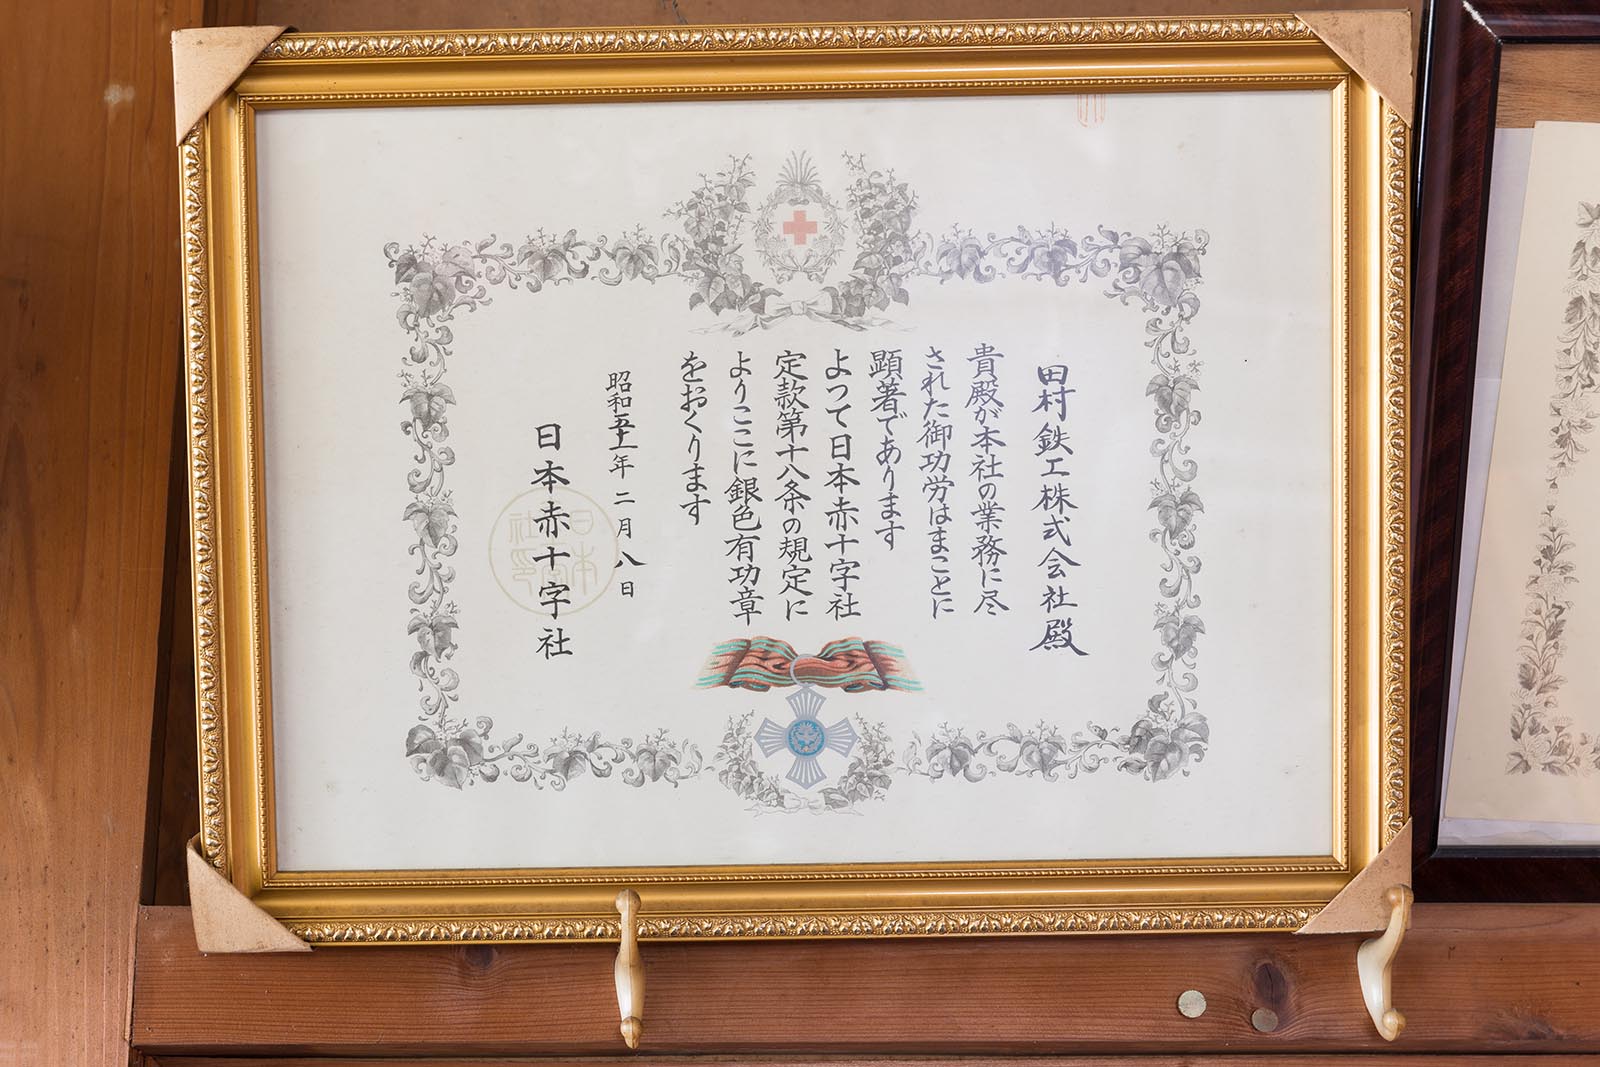 田村鉄工株式会社殿
貴殿が本社の業務に尽
された御功労はまことに
顕著であります
よつて日本赤十字社
定款第十八条の規定に
よりここに銀色有功章
をおくります
昭和五十一年二月八日
日本赤十字社